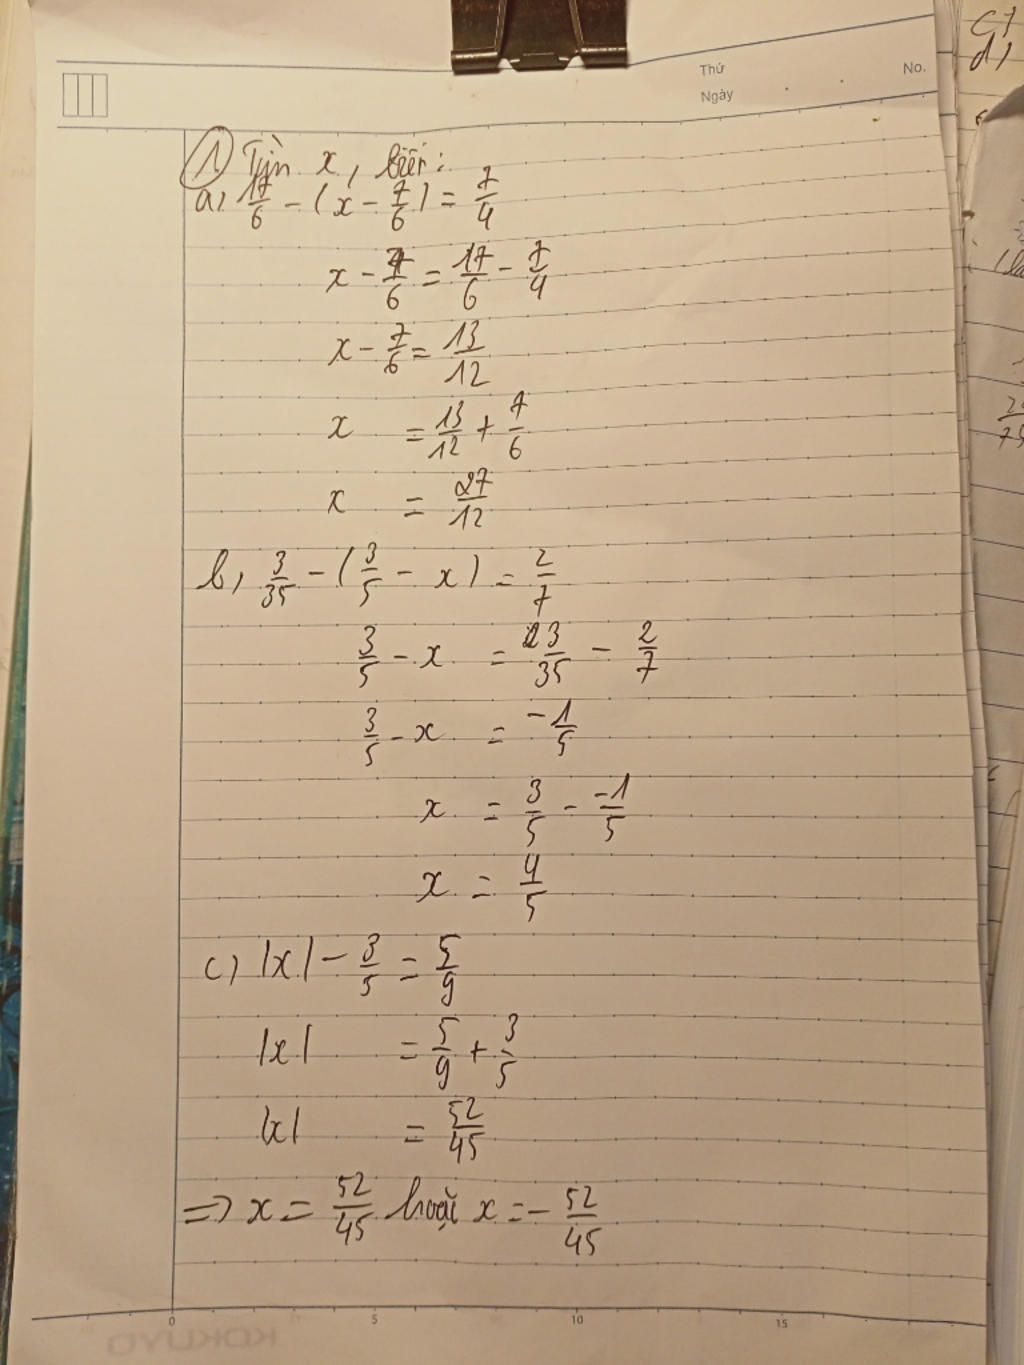 Thứ
No.
Ngày
1) Tìm x, biết:
a, 17/6 - (x - 7/6) = 7/4
x - 7/6 = 17/6 - 7/4
x - 7/6 = 13/12
x = 13/12 + 7/6
x = 27/12
b, 3/35 - (3/5 - x) = 2/7
3/5 - x = 3/35 - 2/7
3/5 - x = -1/5
x = 3/5 - -1/5
x = 4/5
c) |x| - 3/5 = 5/9
|x| = 5/9 + 3/5
|x| = 52/45
=> x = 52/45 hoặc x = - 52/45
0 5 10 15
KOKUYO